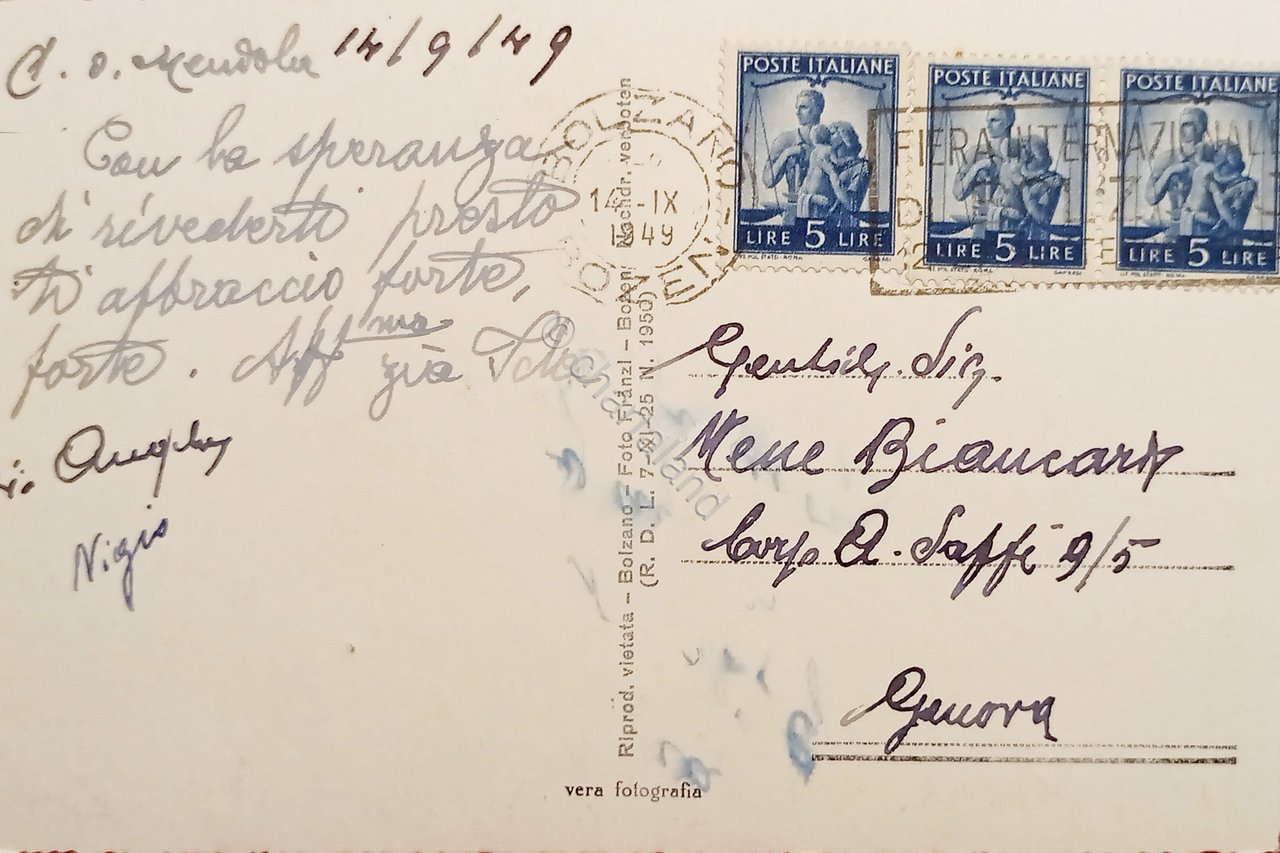 Mendola 14/9/49
Con la speranza
di rivederti presto
ti abbraccio forte,
forte. Aff.ma zia
POSTE ITALIANE
LIRE 5 LIRE
POSTE ITALIANE
LIRE 5 LIRE
POSTE ITALIANE
LIRE 5 LIRE
BOLZANO
14-IX
49
FIERA INTERNAZIONALE
Riprod. vietata – Bolzano – Foto Fränzl – Bozen Nachdr. verboten
(R. D. L. 7-XI-25 N. 1950)
Gentil. Sig.
Biancardi
Corso A. Saffi 9/5
Genova
vera fotografia